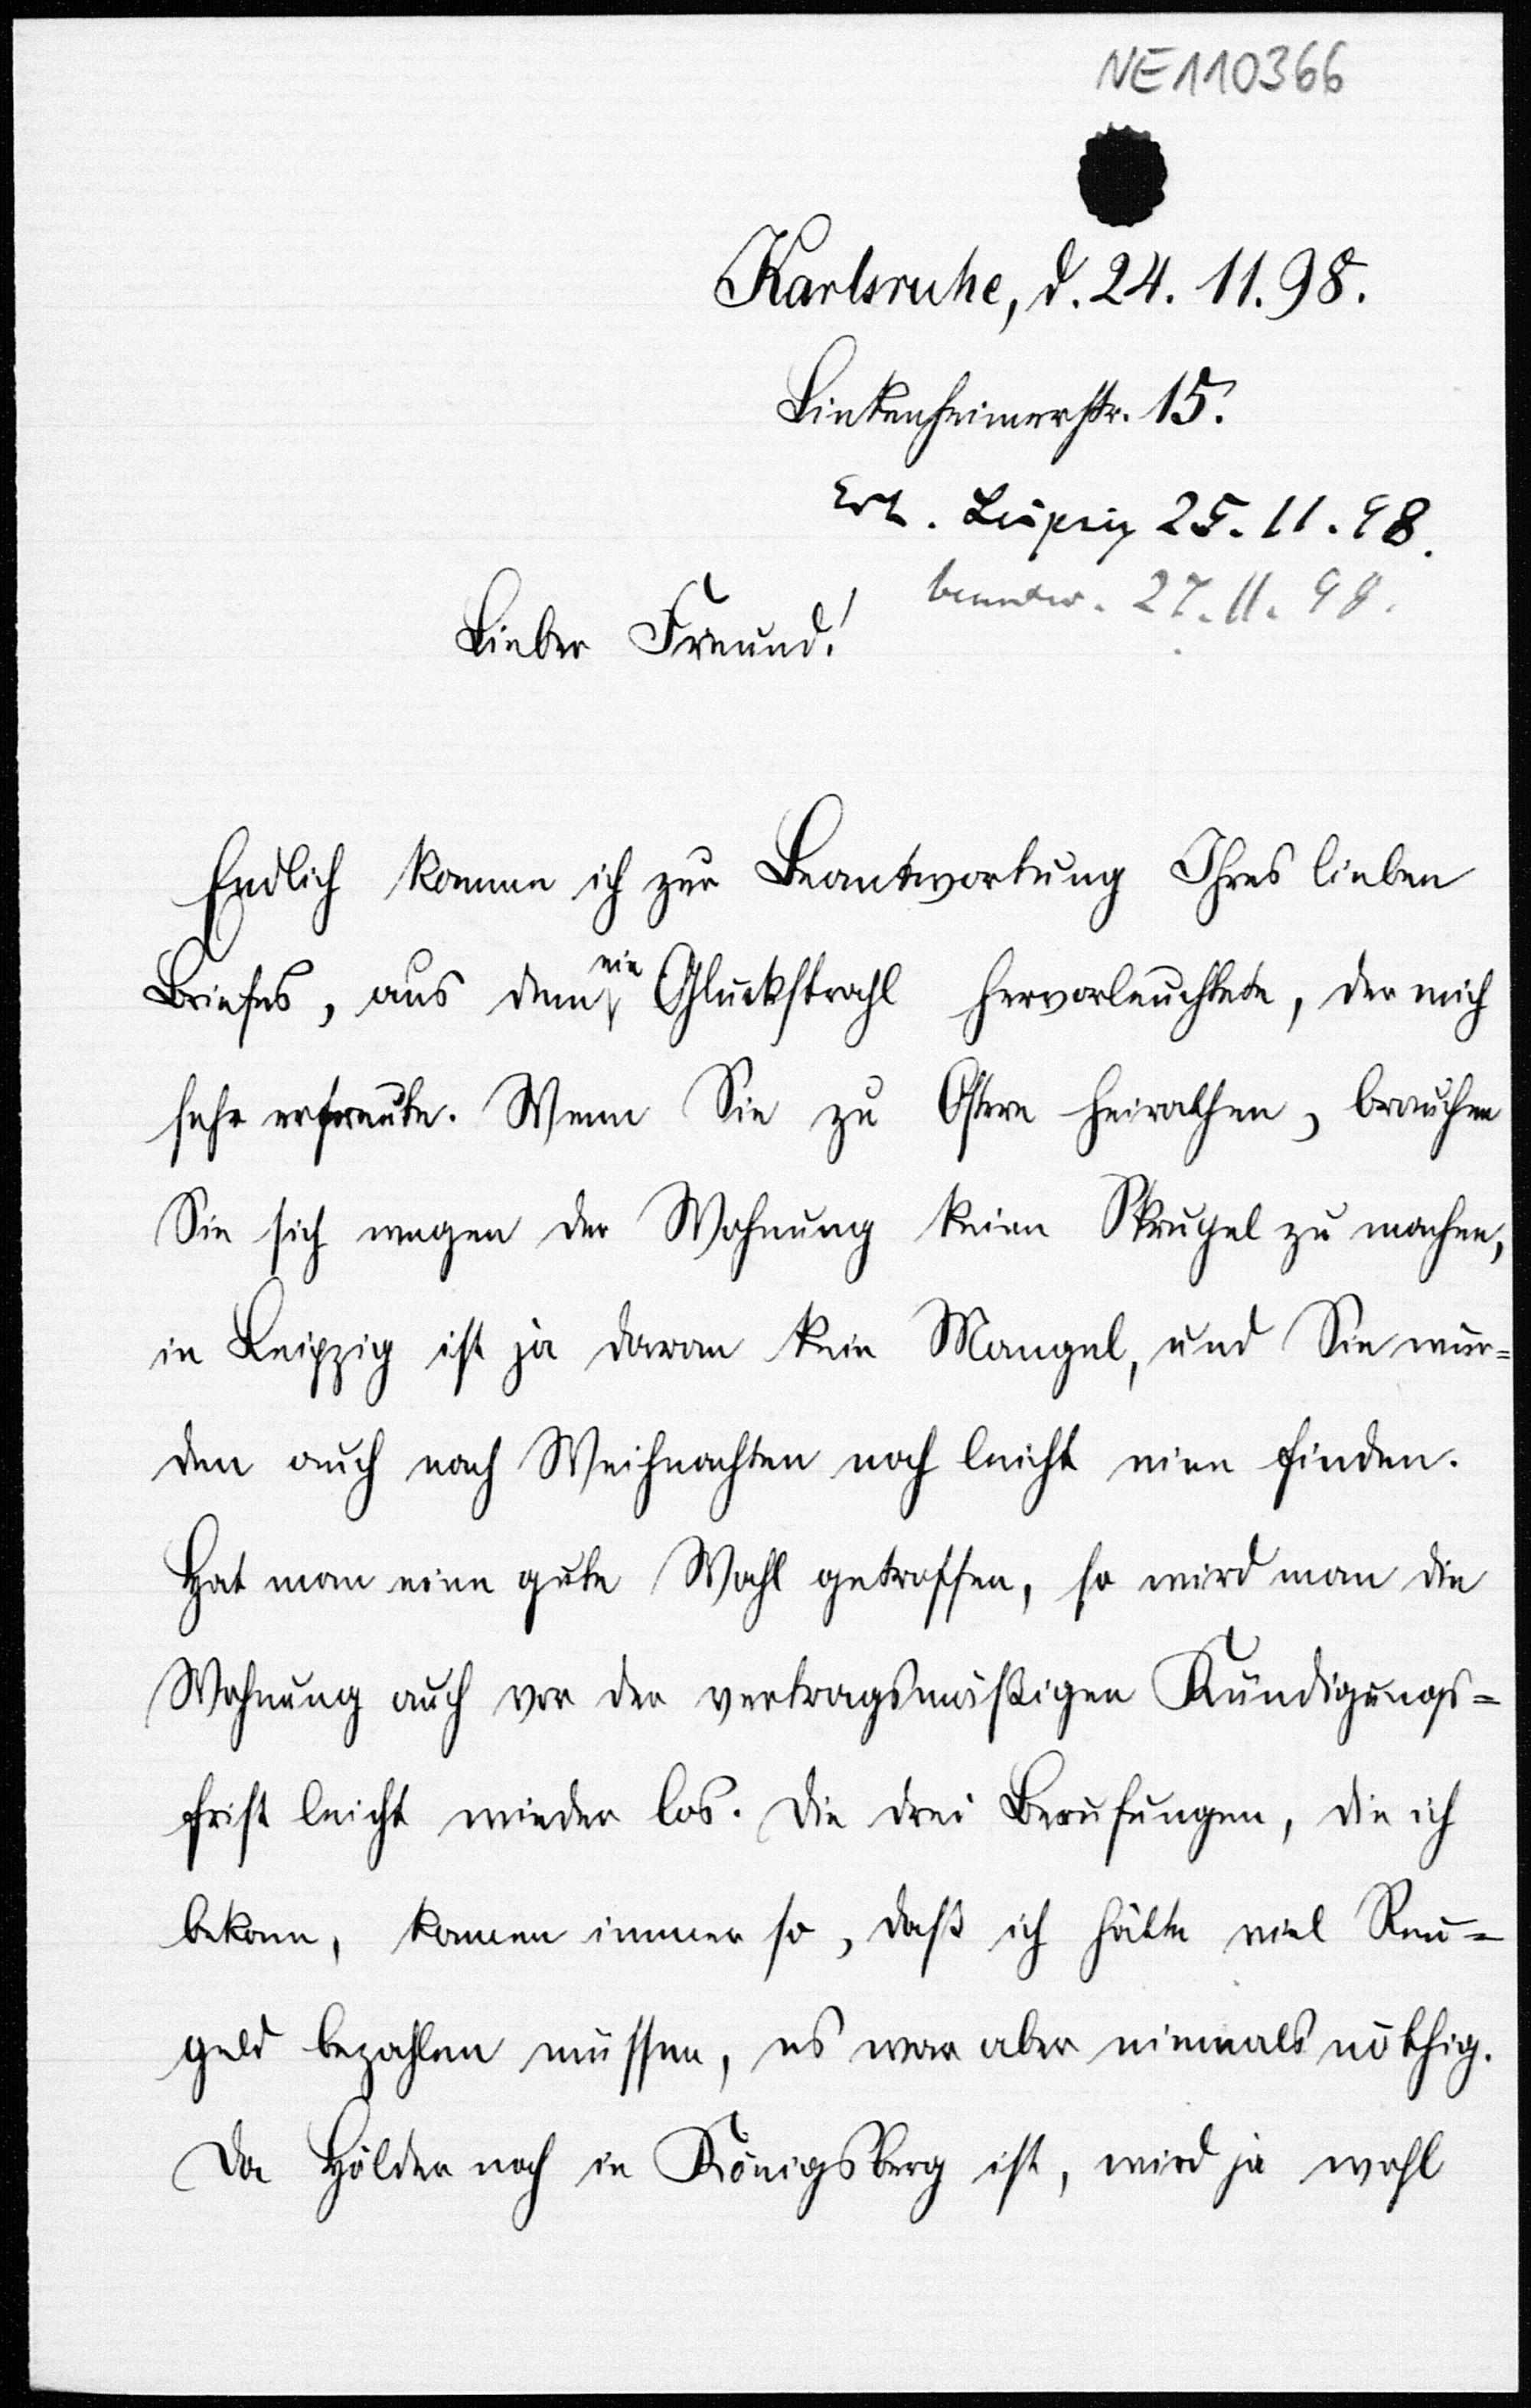 NE110366
Karlsruhe, d. 24. 11. 98.
Linkenheimerstr. 15.
Erh. Leipzig 25. 11. 98.
beantw. 27. 11. 98.
Lieber Freund!
Endlich komme ich zur Beantwortung Ihres lieben
Briefes, aus dem ein Glücksstrahl hervorleuchtete, der mich
sehr erfreute. Wenn Sie zu Ostern heirathen, brauchen
Sie sich wegen der Wohnung keine Skrupel zu machen,
in Leipzig ist ja daran kein Mangel, und Sie wür=
den auch nach Weihnachten noch leicht eine finden.
Hat man eine gute Wahl getroffen, so wird man die
Wohnung auch vor der vertragsmäßigen Kündigungs=
frist leicht wieder los. Die drei Berufungen, die ich
bekam, kamen immer so, daß ich hätte viel Reu=
geld bezahlen müssen, es war aber niemals nöthig.
Da Hölder noch in Königsberg ist, wird ja wohl